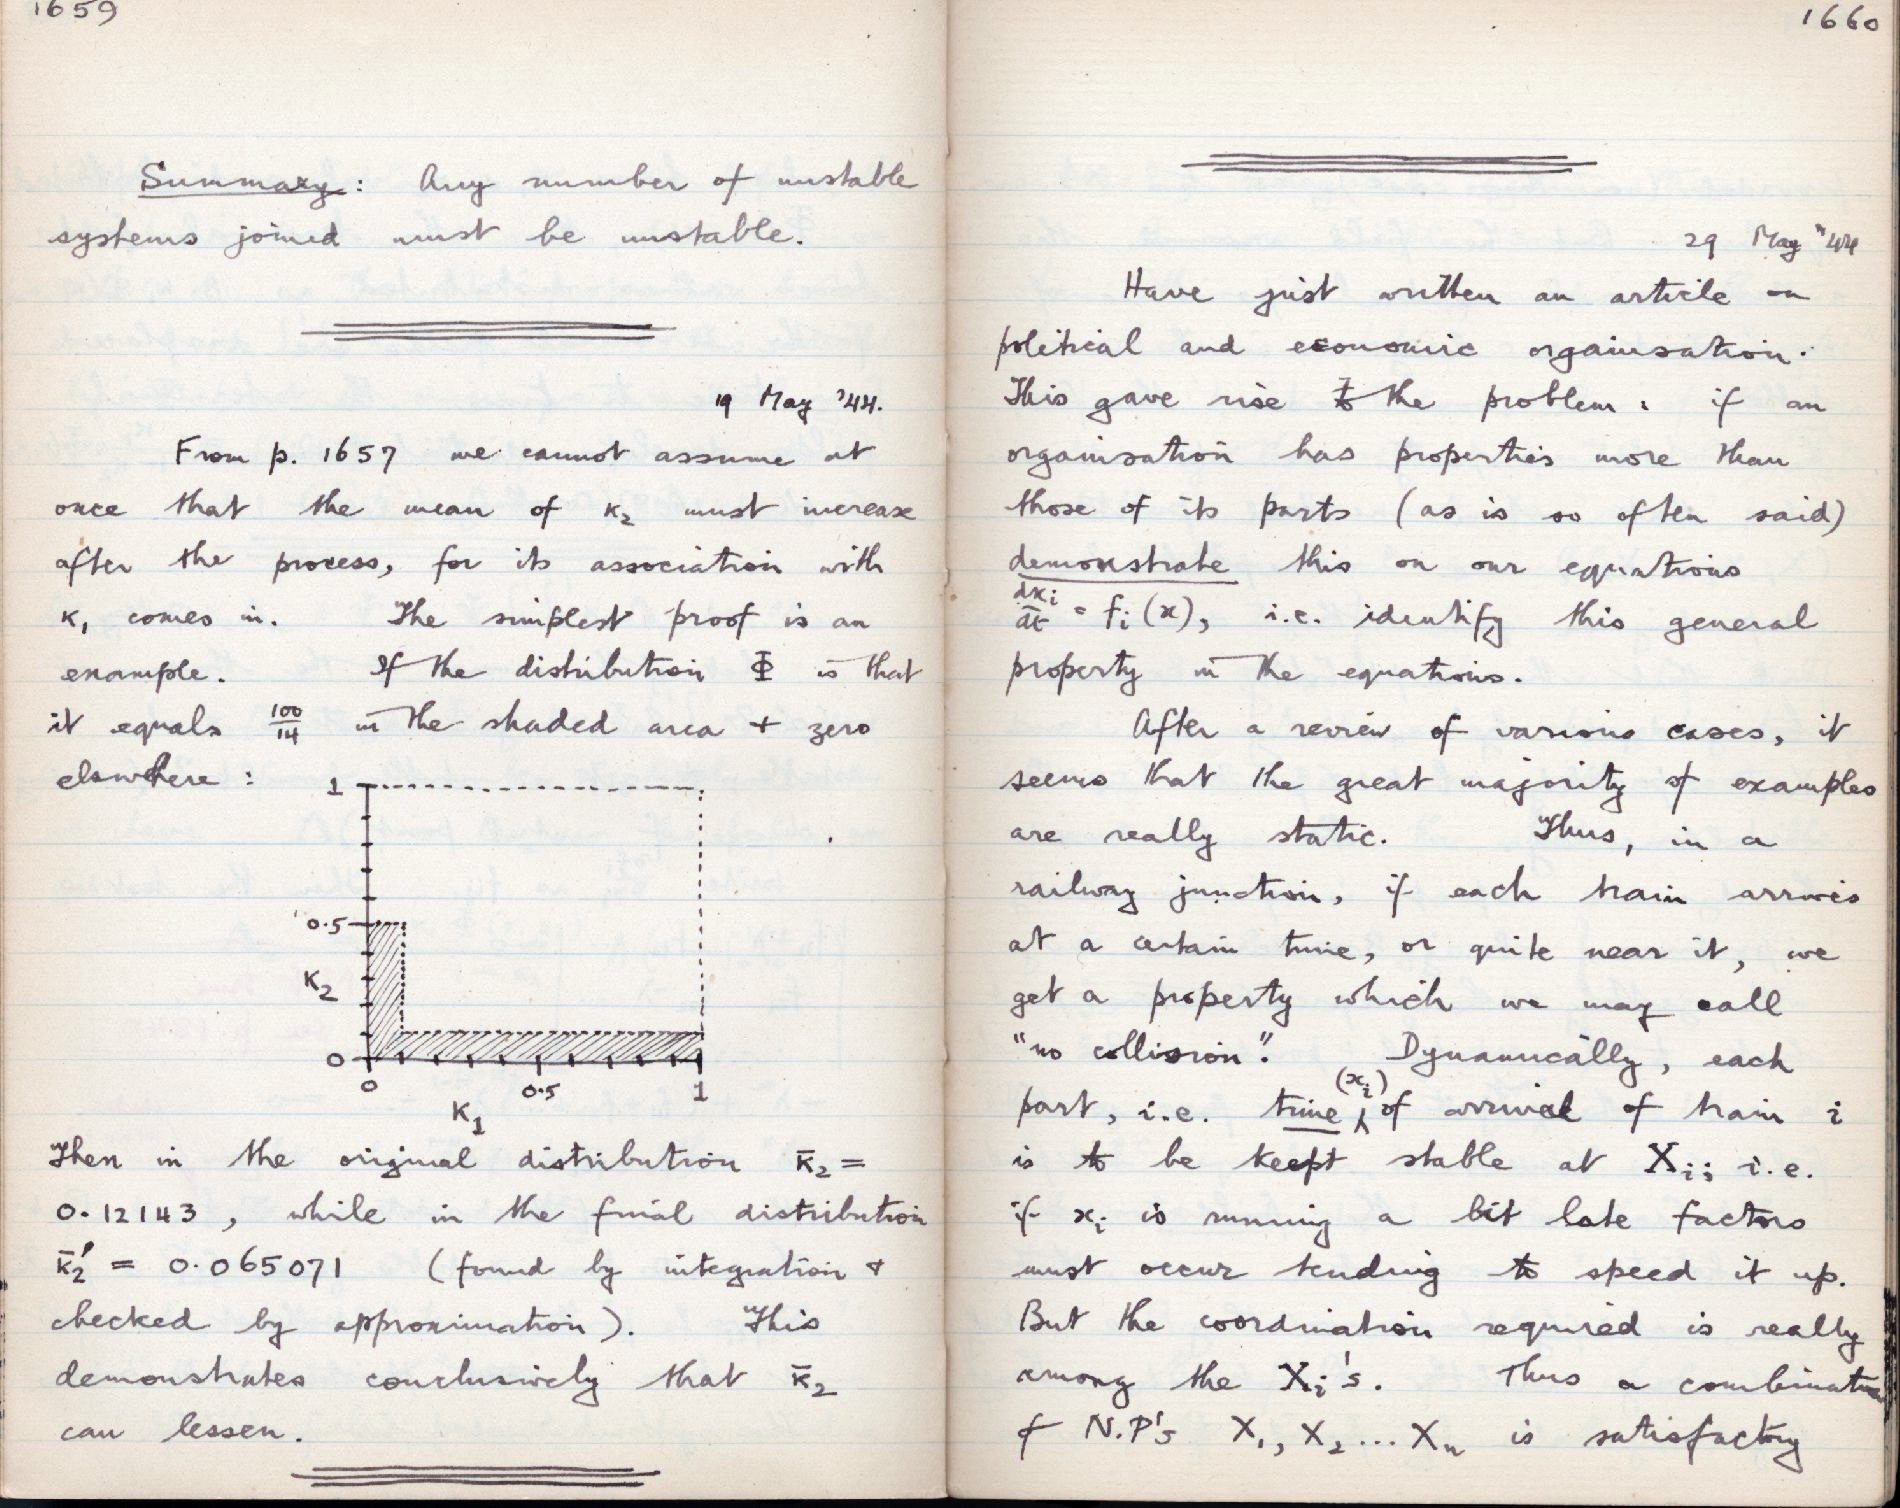 1659
Summary: Any number of unstable
systems joined must be unstable.
19 May '44.
From p. 1657 we cannot assume at
once that the mean of κ₂ must increase
after the process, for its association with
κ₁ comes in. The simplest proof is an
example. If the distribution Φ is that
it equals 100/14 in the shaded area + zero
elswhere:
1
0.5
K₂
0
0 0.5 1
K₁
Then in the original distribution κ̄₂ =
0.12143, while in the final distribution
κ̄₂' = 0.065071 (found by integration +
checked by approximation). This
demonstrates conclusively that κ̄₂
can lessen.
1660
29 May '44
Have just written an article on
political and economic organisation.
This gave rise to the problem: if an
organisation has properties more than
those of its parts (as is so often said)
demonstrate this on our equations
dxᵢ/dt = fᵢ(x), i.e. identify this general
property in the equations.
After a review of various cases, it
seems that the great majority of examples
are really static. Thus, in a
railway junction, if each train arrives
at a certain time, or quite near it, we
get a property which we may call
"no collision". Dynamically, each
part, i.e. time (xᵢ) of arrival of train i
is to be keept stable at Xᵢ; i.e.
if xᵢ is running a bit late factors
must occur tending to speed it up.
But the coordination required is really
among the Xᵢ's. Thus a combination
of N.P's X₁, X₂ ... Xₙ is satisfactory